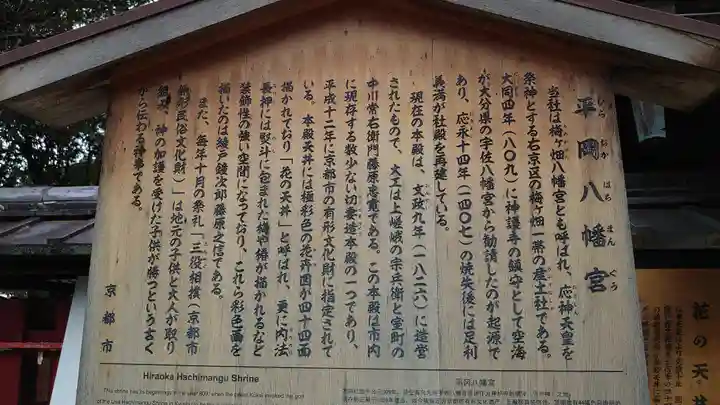 平岡八幡宮
ひらおかはちまんぐう
当社は梅ヶ畑八幡宮とも呼ばれ、応神天皇を
祭神とする右京区の梅ヶ畑一帯の産土社である。
大同四年（八〇九）に神護寺の鎮守として空海
が大分県の宇佐八幡宮から勧請したのが起源で
あり、応永十四年（一四〇七）の焼失後には足利
義満が社殿を再建している。
現在の本殿は、文政九年（一八二六）に造営
されたもので、大工は上嵯峨の宗兵衛と室町の
中川常右衛門藤原忠寛である。この本殿は市内
に現存する数少ない切妻造本殿の一つであり、
平成十二年に京都市の有形文化財に指定されて
いる。本殿天井には極彩色の花卉図が四十四面
描かれており「花の天井」と呼ばれ、更に内法
長押には熨斗に包まれた梅や椿が描かれるなど
装飾性の強い空間になっており、これら彩色画を
描いたのは綾戸鐘次郎藤原之信である。
また、毎年十月の祭礼「三役相撲（京都市
無形民俗文化財）」は地元の子供と大人が取り
組み、神の加護を受けた子供が勝つという古く
から伝わる神事である。
京都市
Hiraoka Hachimangu Shrine
This shrine has its beginnings in the year 809, when the priest Kukai invoked the god
平冈八幡宮
花の天井